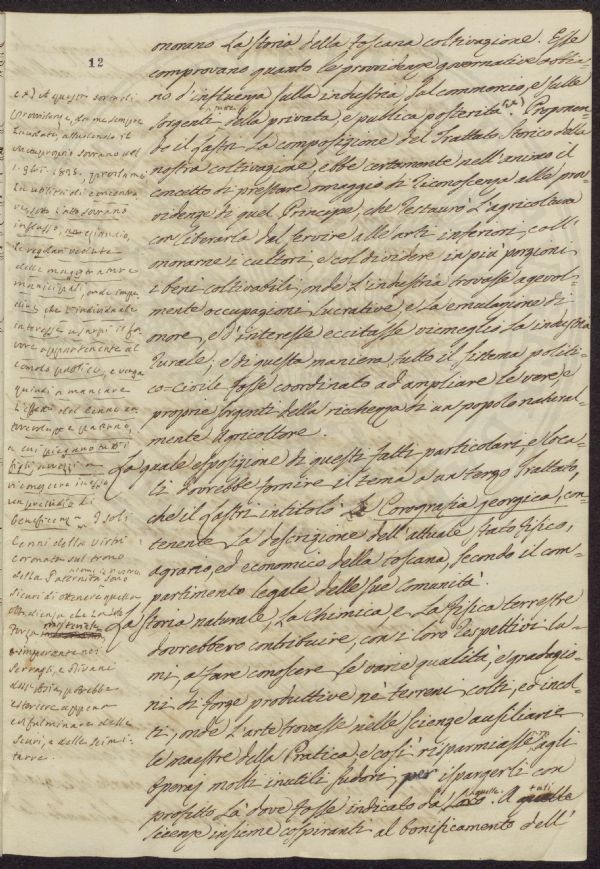 12
onorano la storia della Toscana coltivazione. Esse
comprovano quanto le provvidenze governative
no d'influenza sulla industria, sul commercio, e sulle
sorgenti della privata, e pubblica prosperità (x) Proponen=
do il Pastri la composizione del Trattato storico della
nostra coltivazione, ebbe certamente nell'animo il
concetto di prestare omaggio di riconoscenza alle prov=
videnze di quel Principe, che restaurò l'agricoltura
con liberarla dal servire alle arti inferiori, coll'
onorarne i cultori, e col dividere in più porzioni
i beni coltivabili, onde l'industria trovasse agevol=
mente occupazioni lucrative, e la emulazione di
onore, e d'interesse eccitasse viemeglio la industria
rurale; e di questa maniera tutto il sistema politi=
co=civile fosse coordinato ad ampliare le vere, e
proprie sorgenti della ricchezza di un popolo natural=
mente Agricoltore.
La quale esposizione di questi fatti particolari, e loca=
li dovrebbe fornire il tema a un terzo Trattato,
che il Pastri intitolò Corografia georgica, con=
tenente la descrizione dell'attuale stato fisico,
agrario, ed economico della Toscana, secondo il com=
partimento legale delle sue comunità.
La storia naturale, la Chimica e la Fisica terrestre
dovrebbero contribuire, con i loro respettivi lu=
mi, a fare conoscere le varie qualità, e gradagio=
ni di forze produttive nè terreni colti, ed incol=
ti, onde l'arte trovasse nelle scienze ausiliarie
le maestre della Pratica, e così risparmiassero agli
Operaj molti inutili sudori, per ispargerli con
profitto là dove fosse indicato da quelle. A tali
scienze insieme cospiranti al bonificamento dell'
(x) A questo
provvidenze, da mai sempre
laudate,
proprio sovrano
1838.
in utilità di
sovrano
istesso,
le regolari vedute
delle maggioranze
municipali, onde impe
che l'individuale
interesse
vore appartenente al
comodo pubblico, e venga
quindi a mancare
a cui piegano tutti
figli
un preludio di
beneficenza I soli
cenni della virtù
coronata sul trono
della Paternità sono
sicuri di ottenere quella
obbedienza che
forza
imperante nei
serragli, e
dell'Asia, potrebbe
estorcere appena
col fulminare delle
scuri, e delle scimi=
tarre.